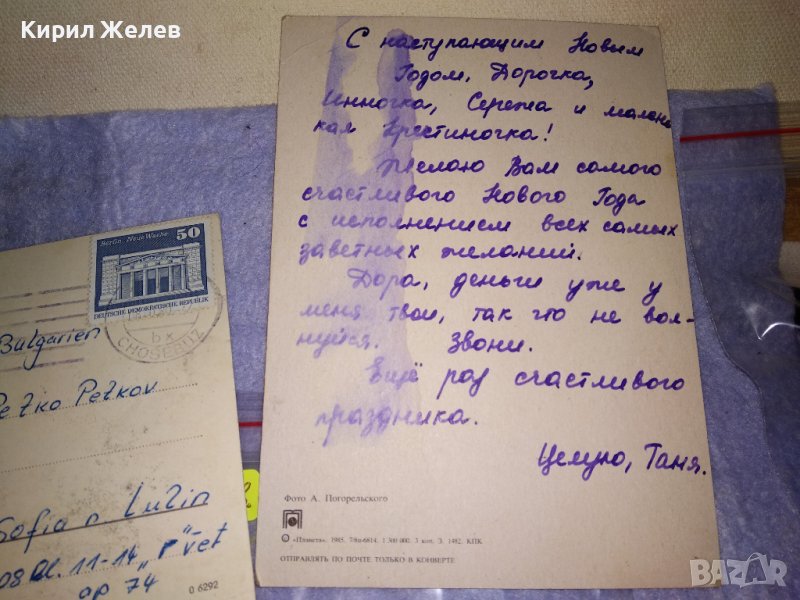 Кирил Желев
С наступающим Новым
Годом, Дорочка,
Инночка, Сережа и малень
кая Кристиночка!
Желаю Вам самого
счастливого Нового Года
с исполнением всех самых
заветных желаний.
Дора, деньги уже у
меня твои, так что не вол-
нуйся. Звони.
Ещё раз счастливого
праздника.
Целую, Таня.
Фото А. Погорельского
© «Планета», 1985. 1 300 000. 3 коп. З. 1482. КПК.
ОТПРАВЛЯТЬ ПО ПОЧТЕ ТОЛЬКО В КОНВЕРТЕ
Berlin, Neue Wache 50
DEUTSCHE DEMOKRATISCHE REPUBLIK
bx
Bulgarien
Petko Petkov
Sofia n Lulin
11-14
ap 74
0 6292
BAZAR